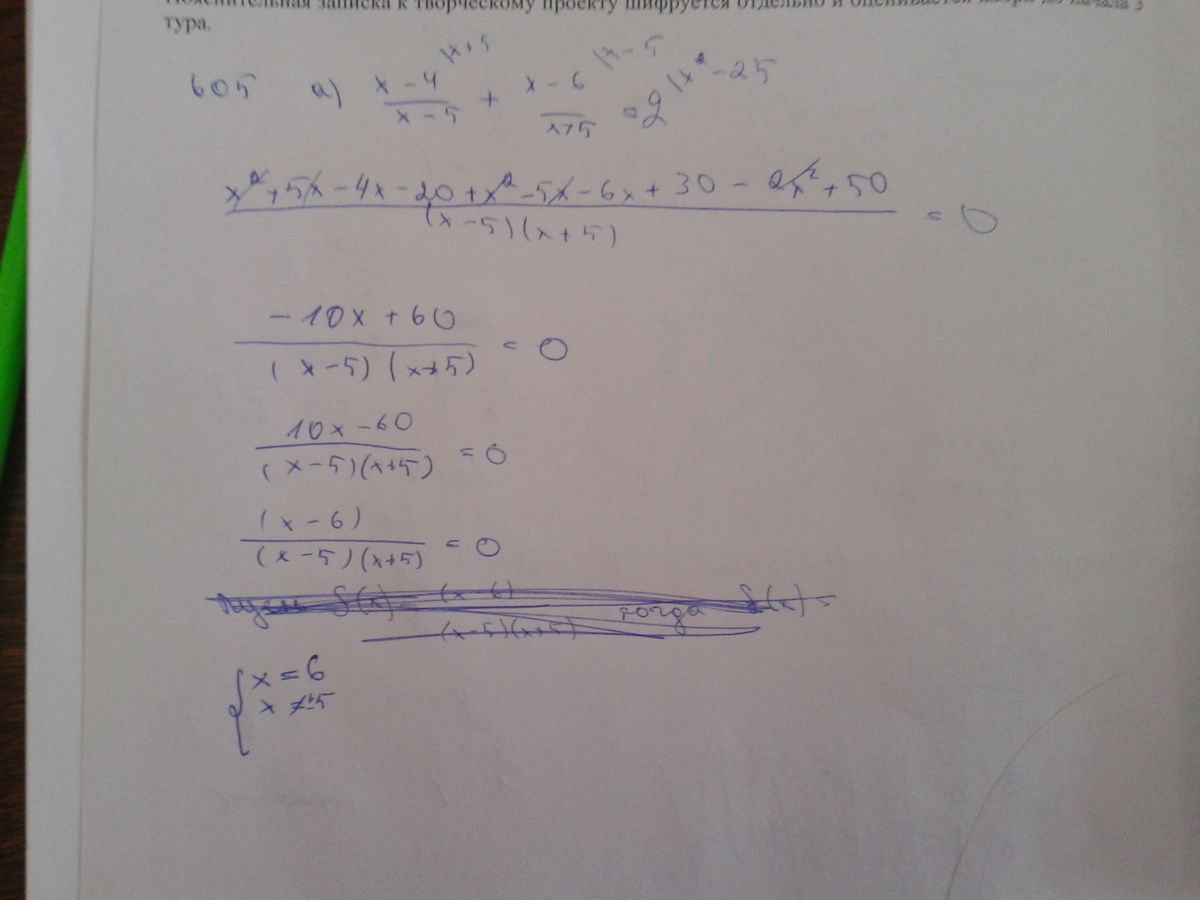 Пояснительная записка к творческому проекту шифруется отдельно и оценивается жюри до начала 3
тура.
605 а) (x - 4)/(x - 5) |x + 5 + (x - 6)/(x + 5) |x - 5 = 2 |x² - 25
(x² + 5x - 4x - 20 + x² - 5x - 6x + 30 - 2x² + 50)/((x - 5)(x + 5)) = 0
(- 10x + 60)/((x - 5)(x + 5)) = 0
(10x - 60)/((x - 5)(x + 5)) = 0
(x - 6)/((x - 5)(x + 5)) = 0
{ x = 6
x ≠ ±5